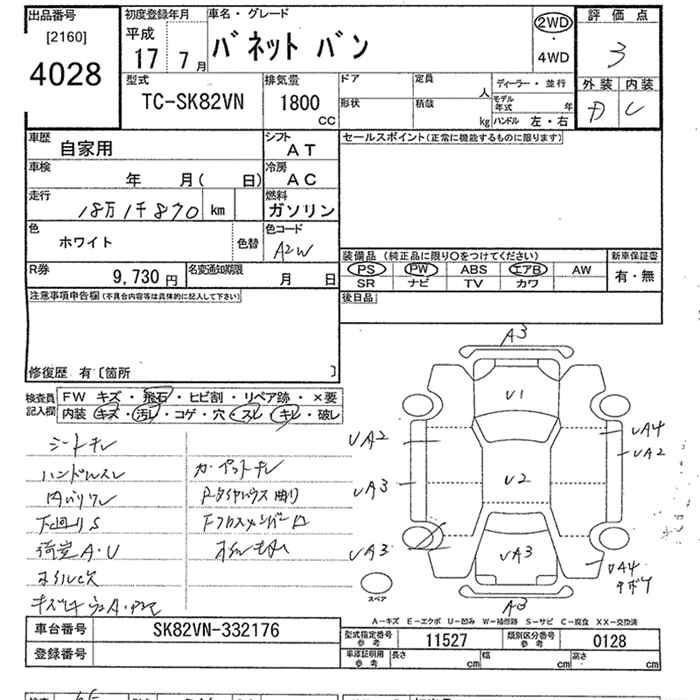 出品番号
[2160]
4028
初度登録年月
平成
17 7月
車名・グレード
バネット バン
2WD
・
4WD
評価点
3
外装 内装
D C
型式
TC-SK82VN
排気量
1800
cc
ドア
定員
人
形状
積載
kg
ディーラー・並行
モデル年式 年
ハンドル 左・右
車歴
自家用
シフト
AT
車検
年 月( 日)
冷房
AC
走行
18万1千870 km
燃料
ガソリン
色
ホワイト
色替
色コード
A2W
R券
9,730 円
名変通知期限
月 日
セールスポイント(正常に機能するものに限ります)
装備品 (純正品に限り○をつけてください)
PS PW ABS エアB AW
SR ナビ TV カワ
新車保証書
有・無
後日品
注意事項申告欄(不具合内容等は具体的に記入して下さい)
修復歴 有〔箇所 〕
検査員
記入欄
FW キズ・飛石・ヒビ割・リペア跡・×要
内装 キズ・汚レ・コゲ・穴・スレ・キレ・破レ
シートキレ
ハンドルスレ
内バリワレ
下回りS
荷室A・U
カーペットキレ
A3
U1
UA2
UA4
UA2
UA3
U2
UA3
UA3
UA4
A3
スペア
A-キズ E-エクボ U-凹み W-補修跡 S-サビ C-腐食 XX-交換済
車台番号
SK82VN-332176
登録番号
型式指定番号
参考
11527
類別区分番号
参考
0128
車庫証明用
参考
長さ cm
幅 cm
高さ cm